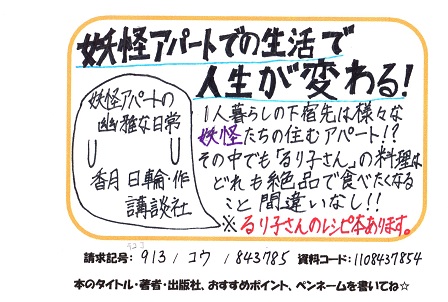 妖怪アパートでの生活で
人生が変わる!
妖怪アパートの
幽雅な日常
香月日輪・作
講談社
1人暮らしの下宿先は様々な
妖怪たちの住むアパート!?
その中でも「るり子さん」の料理は
どれも絶品で食べたくなる
こと間違いなし!!
※るり子さんのレシピ本あります。
請求記号: 913 / コウ / 843785 資料コード:1108437854
本のタイトル・著者・出版社、おすすめポイント、ペンネームを書いてね☆